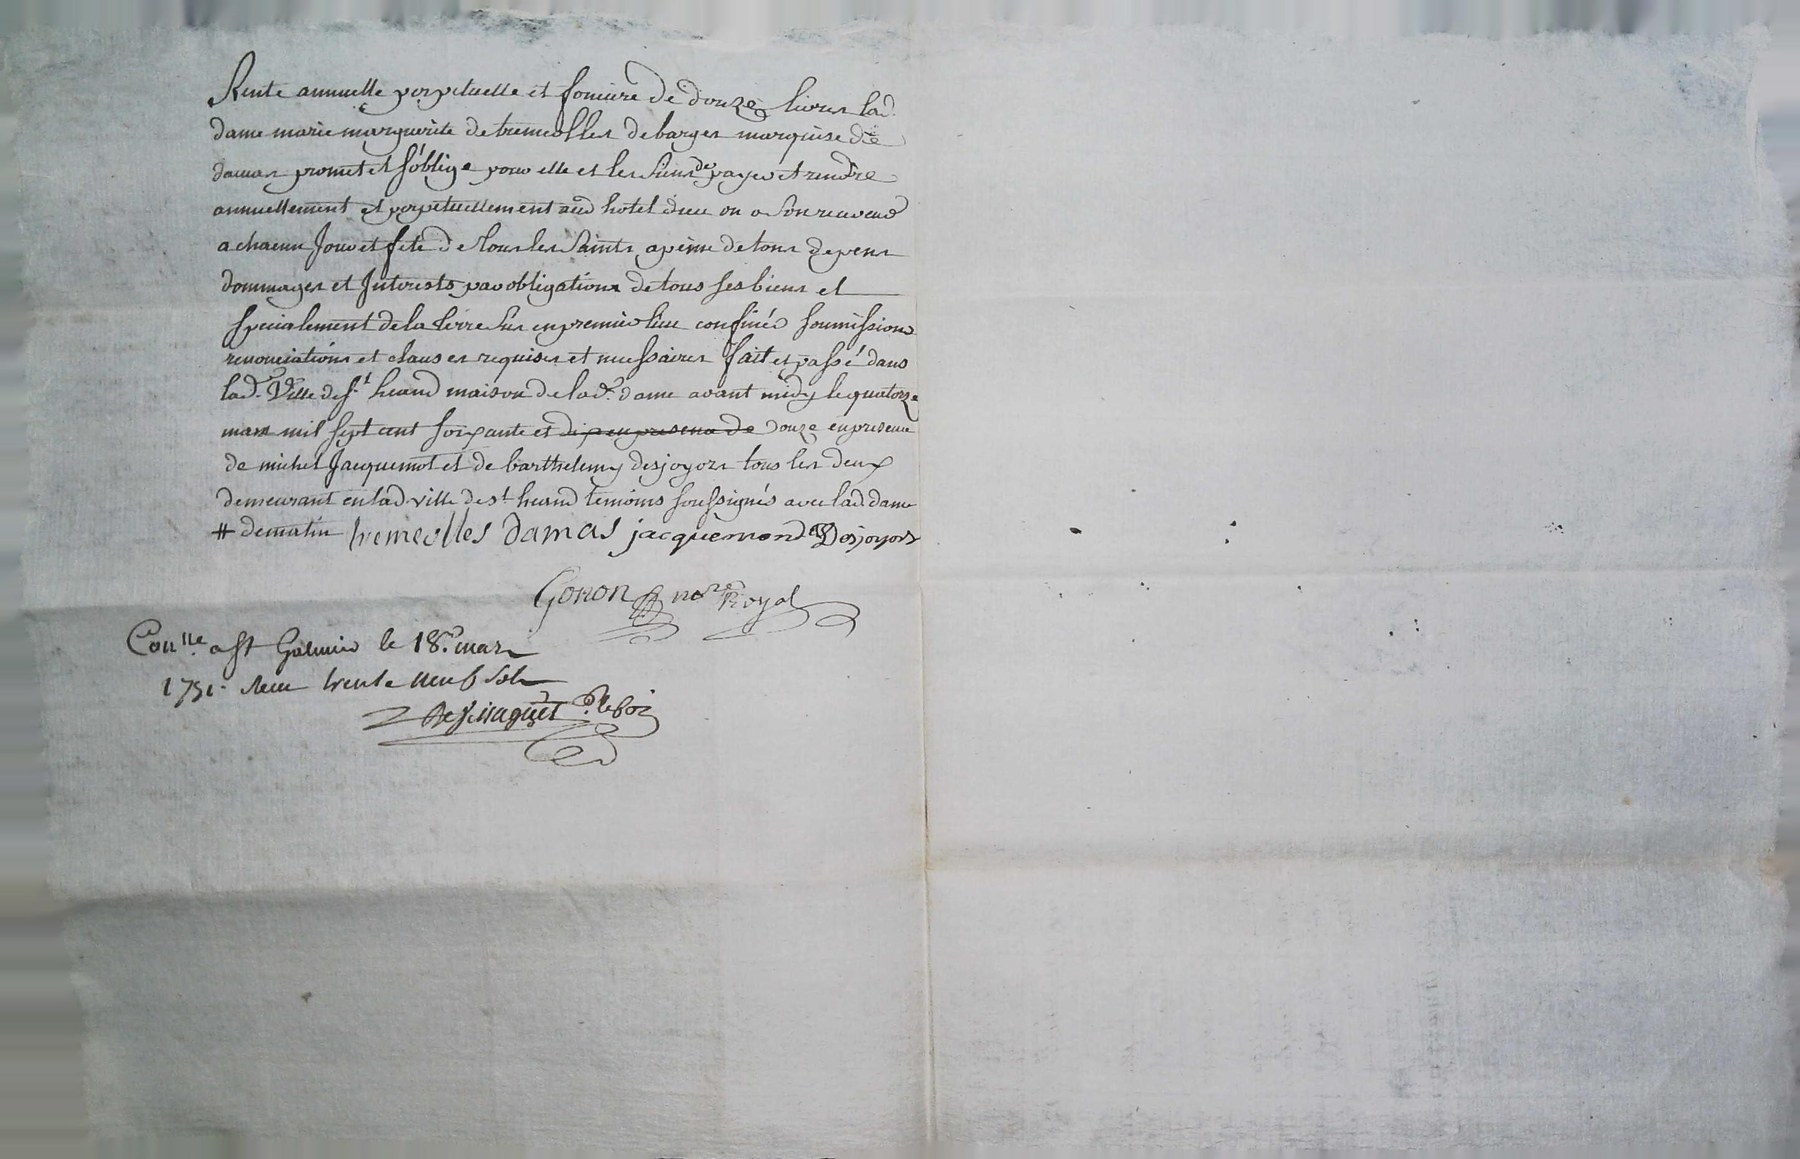 Rente annuelle perpetuelle et fonciere de douze livres lad.
dame marie marguerite de tremeolles de barges marquise de
damas promet et s'oblige pour elle et les siens de payer et rendre
annuellement et perpetuellement aud hotel dieu ou a son receveur
a chacun Jour et fete de tous les Saints a peine de tous depens
dommages et Interests par obligations de tous ses biens et
specialement de la terre sus en premier lieu confinée soumissions
renonciations et clauses requises et necessaires fait et passé dans
lad. Ville de st heand maison de lad. dame avant midy le quatorze
mars mil sept cent soixante et dix en presence de douze en presence
de michel Jacquemot et de barthelemy desjoyors tous les deux
demeurant en lad. ville de st heand temoins soussignés avec lad. dame
# dematin tremeolles Damas jacquemond Desjoyors
Gonon nore Royal
Conlle a st Galmier le 18e mars
recu trente neuf sols